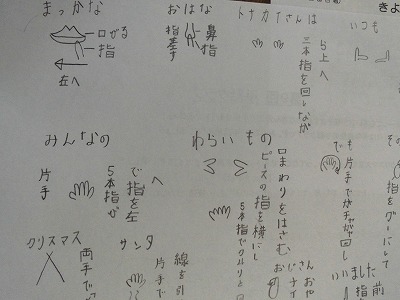 きよ
いつも
トナカイさんは
五上へ
三本指を回しなが
おはな
鼻指
指差す
まっかな
口びる
指
左へ
そ
指をグーにして
も片手でガチャガチャ回し
で
わらいもの
口まわりをはさむ
ピースの指を横にし
5本指でクルリと
みんなの
へ
で指を左
5本指が
片手
ました
指前
いい
おじさん
サンタ
線を引
片手で
クリスマス
両手で